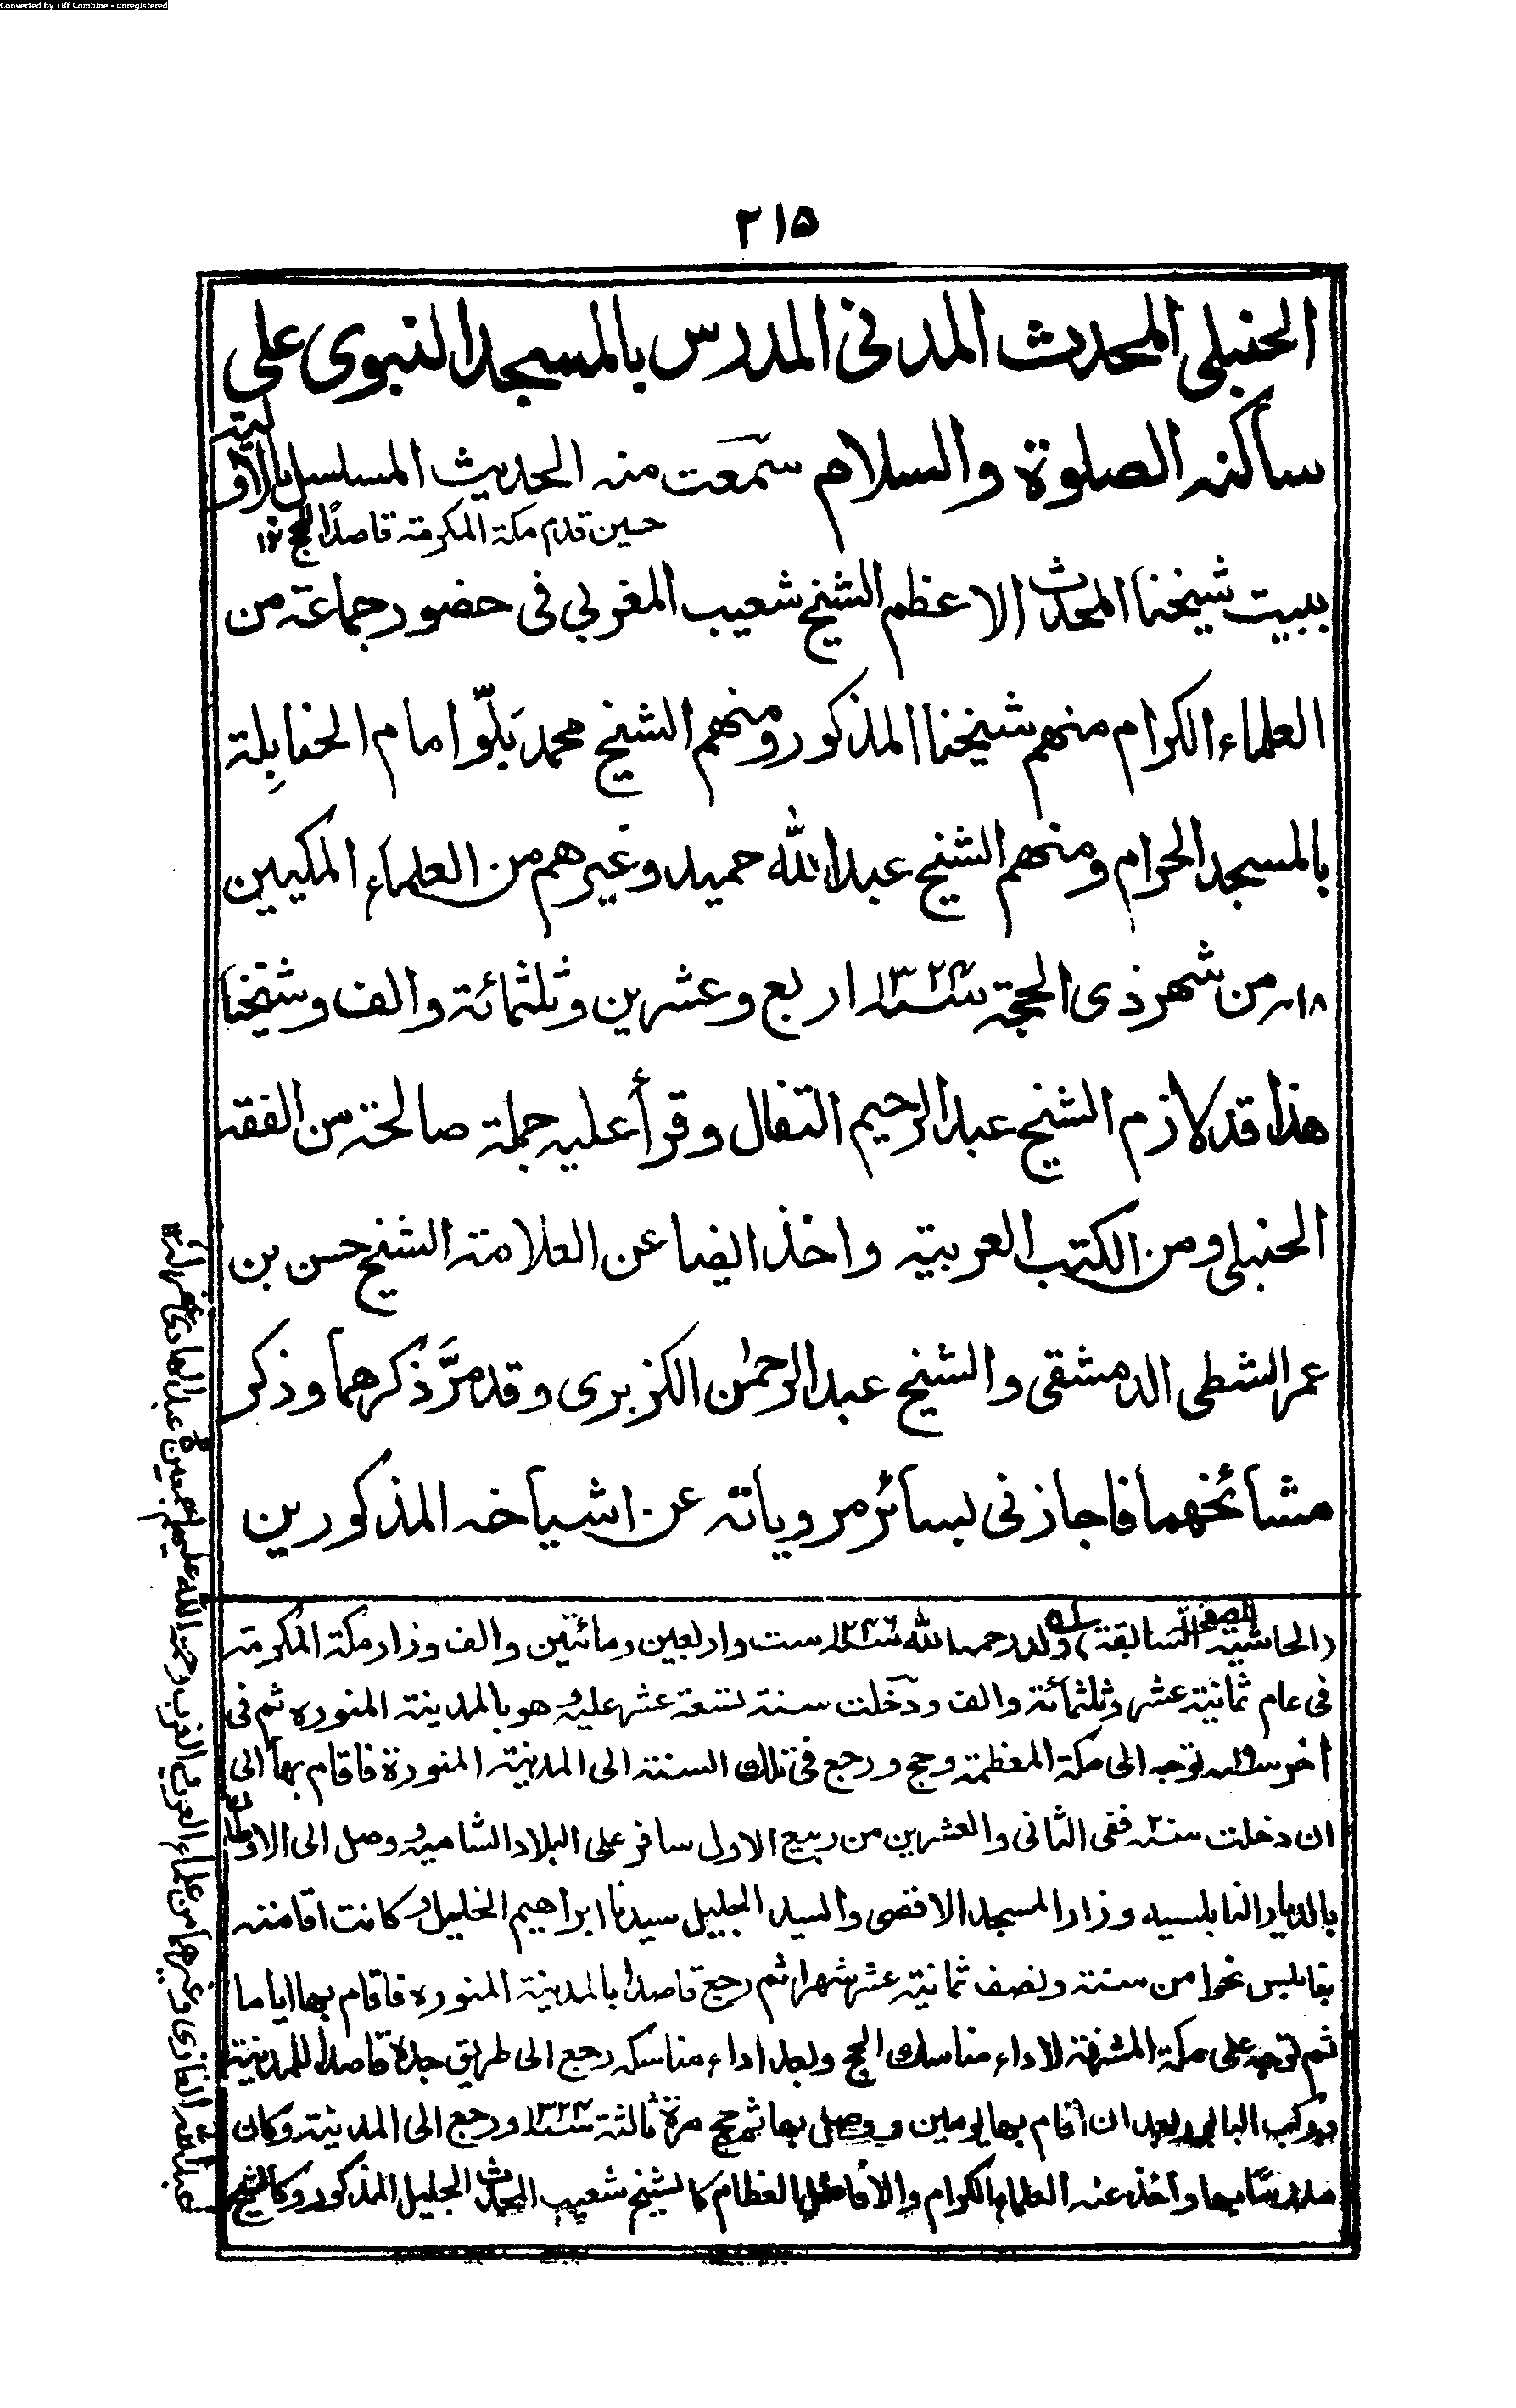 Converted by Tiff Combine - unregistered
٢١٥
الحنبلى المحدث المدنى المدرس بالمسجد النبوى على
ساكنه الصلوة والسلام سمعت منه الحديث المسلسل بالاولية
حين قدم مكة المكرمة قاصدًا للحج ١٢
ببيت شيخنا المحدث الاعظم الشيخ شعيب المغربى فى حضور جماعة من
العلماء الكرام منهم شيخنا المذكور ومنهم الشيخ محمد بَلّو امام الحنابِلة
بالمسجد الحرام ومنهم الشيخ عبدالله حميد وغيرهم من العلماء المكيين
١٨ من شهر ذى الحجة سنة ١٣٢٤ اربع وعشرين وثلثمائة والف وشيخنا
هذا قد لازم الشيخ عبدالرحيم التفال وقرأ عليه جملة صالحة من الفقه
الحنبلى ومن الكتب العربية واخذ ايضا عن العلامة الشيخ حسن بن
عمر الشطى الدمشقى والشيخ عبدالرحمٰن الكزبرى وقد مرَّ ذكرهما وذكر
مشائخهما فاجازنى بسائر مروياته عن اشياخه المذكورين
(الحاشية الصفحة السابقة) له ولد رحمه الله سنة ١٢٤٦ ست واربعين ومائتين والف وزار مكة المكرمة
فى عام ثمانية عشر وثلثمائة والف ودخلت سنة تسعة عشر عليه وهو بالمدينة المنوره ثم فى
اخر سنة ١٩ توجه الى مكة المعظمة وحج ورجع فى تلك السنة الى المدينة المنورة فاقام بها الى
ان دخلت سنة ٢٠ ففى الثانى والعشرين من ربيع الاول سافر على البلاد الشامية ووصل الى الاوطان
بالديار النابلسيه وزار المسجد الاقصى والسيد الجليل سيدنا ابراهيم الخليل وكانت اقامته
بنابلس نحوا من سنة ونصف ثمانية عشر شهرا ثم رجع قاصدا بالمدينة المنوره فاقام بها اياما
ثم توجه على مكة المشرفة لاداء مناسك الحج وبعد اداء مناسكه رجع الى طريق جدة قاصدا للمدينة
وركب البابور بعد ان اقام بها يومين ووصل بها ثم حج مرة ثالثة سنة ١٣٢٤ ورجع الى المدينة وكان
مدرسًا بها واخذ عنه العلماء الكرام والافاضل العظام كالشيخ شعيب المحدث الجليل المذكور وكالشيخ
عبدالله الغازى وغيرهما من علماء العرب رحمة الله عليهم اجمعين عبدالهادى غفر له